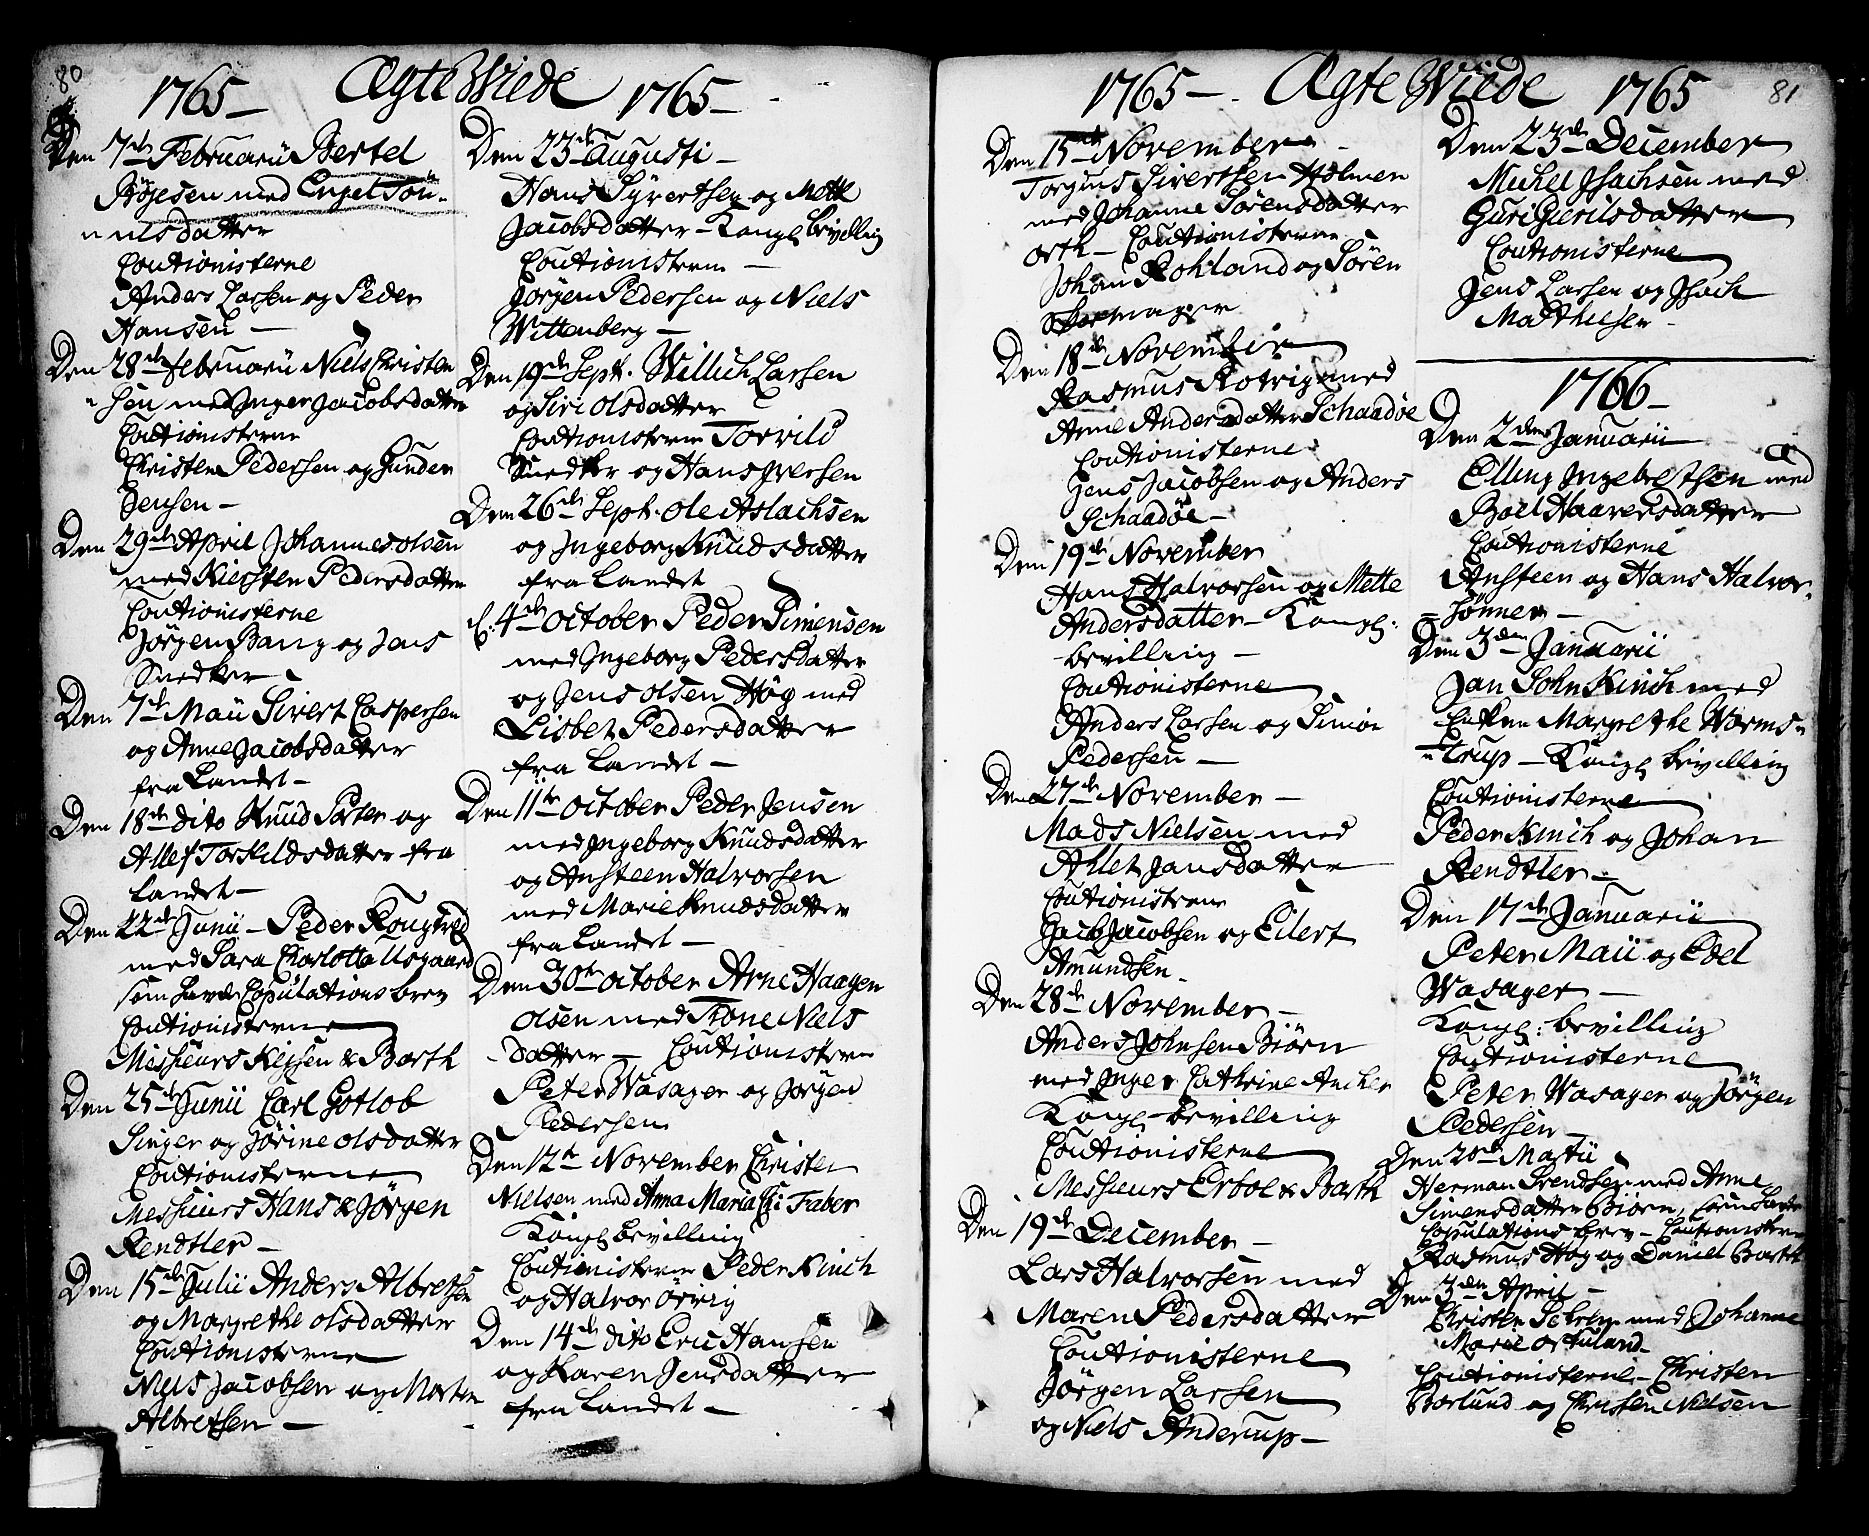 80
1765 – Ægte Wiede 1765 –
Den 7de Februarii Bertel
Böjesen med Engel Tön-
nilsdatter
Cautionisterne
Anders Larsen og Peder
Hansen –
Den 28de Februarii Niels Christen
sen med Inger Jacobsdatter
Cautionisterne
Christen Pedersen og Gunder
Jensen –
Den 29de April Johannes olsen
med Kiersten Pedersdatter
Cautionisterne
Jörgen Bang og Jens
Snedker
Den 7de Maii Sivert Caspersen
og Anne Jacobsdatter
fra Landet –
Den 18de dito Knud Porter og
Allef Torkildsdatter fra
Landet –
Den 22de Junii – Peder Kougtved
med Sara Charlotta Usgaard
som havde Copulations brev
Cautionisterne
Messieurs Keysen & Barth
Den 25de Junii Carl Gotlob
Singer og Jörine olsdatter
Cautionisterne
Messieurs Hans & Jörgen
Rendtler –
Den 15de Julii Anders Albretsen
og Margrethe olsdatter
Cautionisterne
Nels Jacobsen og Morten
Albretsen –
Den 23de Augusti –
Hans Syvertsen og Mette
Jacobsdatter – Kongl bevilling
Cautionisterne –
Jörgen Pedersen og Niels
Wittenberg –
Den 19de Sept. Willich Larsen
og Siri olsdatter
Cautionisterne Torvild
Snedker og Hans Iversen
Den 26de Sept. ole Aslachsen
og Ingeborg Knudsdatter
fra Landet
d. 4de october Peder Simensen
med Ingeborg Pedersdatter
og Jens olsen Høg med
Lisbet Pedersdatter
fra Landet –
Den 11te october Peder Jensen
med Ingeborg Knudsdatter
og Ansteen Halvorsen
med Marie Knudsdatter
fra Landet –
Den 30te october Arne Haagen
olsen med Trone Niels
datter – Cautionisterne
Peter Wasager og Jörgen
Pedersen
Den 12te November Christen
Nielsen med Anna Maria Faber
Kongl bevilling
Cautionisterne Peder Kinch
og Halvor örvig
Den 14de dito Eric Hansen
og Karen Jensdatter
fra Landet –
81
1765 – Ægte Wiede 1765
Den 15de November
Torgius Sivertsen Holmen
med Johanne Sörensdatter
orth – Cautionisterne
Johan Rohland og Sören
Den 18de November
Rasmus Rotrig med
Anne Andersdatter Schaadöe
Cautionisterne
Jens Jacobsen og Anders
Schaadöe –
Den 19de November
Hans Halvorsen og Mette
Andersdatter – Kongl:
bevilling –
Cautionisterne
Anders Larsen og Simon
Pedersen –
Den 27de November –
Mads Nielsen med
Ahlet Jansdatter
Cautionisterne
Jacob Jacobsen og Eilert
Amundsen –
Den 28de November –
Anders Johnsen Biörn
med Inger Cathrine Ancher
Kongl bevilling
Cautionisterne
Messieurs Erboe & Barth
Den 19de December –
Lars Halvorsen med
Maren Pedersdatter
Cautionisterne
Jörgen Larsen
og Niels Anderup –
Den 23de December
Michel Isachsen med
Guri Gierilsdatter
Cautionisterne
Jens Larsen og Isach
Mathiesen –
1766 –
Den 2den Januarii
Elling Ingebretsen med
Boel Haavensdatter
Cautionisterne
Ansteen og Hans Halvor-
=sönner –
Den 3den Januarii
Jan John Kinch med
Enken Margrethe Worms-
=trup – Kongl bevilling
Cautionisterne
Peder Kinch og Johan
Rendtler –
Den 17de Januarii
Peter Maii og Edel
Wasager –
Kongl: bevilling
Cautionisterne
Peter Wasager og Jörgen
Pedersen –
Den 20de Martii
Herman Svendsen med Anne
Simensdatter Biörn, som havde
Copulations brev – Cautionisterne
Rasmus Høg og Daniel Barth
Den 3den April –
Christen med Johanne
Marie
Cautionisterne – Christen
Borlund og Christen Nielsen